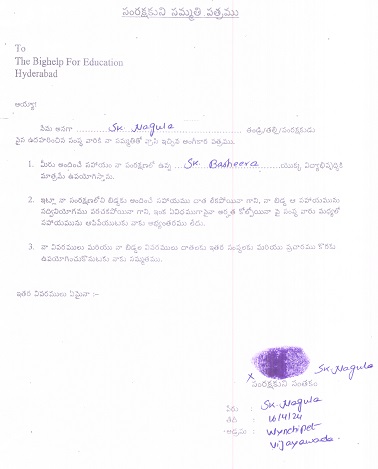 సంరక్షకుని సమ్మతి పత్రము
To
The Bighelp For Education
Hyderabad
అయ్యా!
నేను అనగా ........ SK. Nagula ........ తండ్రి/తల్లి/సంరక్షకుడు
పైన ఉదహరించిన సంస్థ వారికి నా సమ్మతితో వ్రాసి ఇచ్చిన అంగీకార పత్రము.
1. మీరు అందించే సహాయం నా సంరక్షణలో ఉన్న ..... SK. Basheera ..... యొక్క విద్యాభివృద్ధికి
మాత్రమే ఉపయోగిస్తాను.
2. ఇట్లా నా సంరక్షణలోని బిడ్డకు అందించే సహాయము చాల లేకపోయినా గాని, నా బిడ్డ ఆ సహాయమును
సద్వినియోగము పరచకపోయినా గాని, ఇంక ఏవిధముగానైనా అర్హత కోల్పోయినా పై సంస్థ వారు మధ్యలో
సహాయమును ఆపివేయుటకు నాకు అభ్యంతరము లేదు.
3. నా వివరములు మరియు నా బిడ్డల వివరములు దాతలకు ఇతర సంస్థలకు మరియు ప్రచారము కొరకు
ఉపయోగించుకొనుటకు నాకు సమ్మతము.
ఇతర వివరములు ఏమైనా :-
X SK. Nagula
సంరక్షకుని సంతకం
పేరు : SK. Nagula
తేది : 16/4/24
అడ్రసు : Wynchipet
Vijayawada.